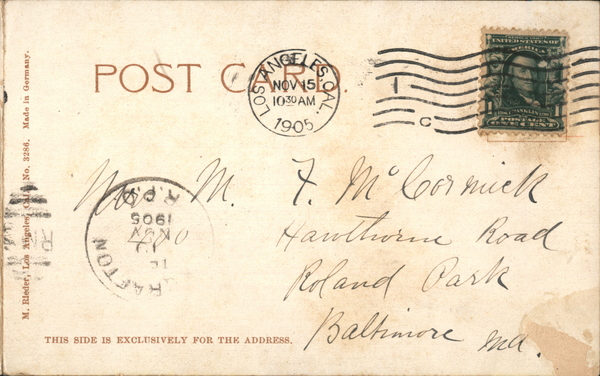 POST CARD.
LOS ANGELES, CAL.
NOV 15
10 30 AM
1905
1
C
UNITED STATES OF
AMERICA
1
FRANKLIN
POSTAGE
ONE CENT
1
M. Rieder, Los Angeles, Cal. No. 3286. Made in Germany.
Mrs. M. F. McCormick
400 Hawthorne Road
Roland Park
Baltimore Md.
GRAFTON
NOV
1905
R.P.O.
THIS SIDE IS EXCLUSIVELY FOR THE ADDRESS.